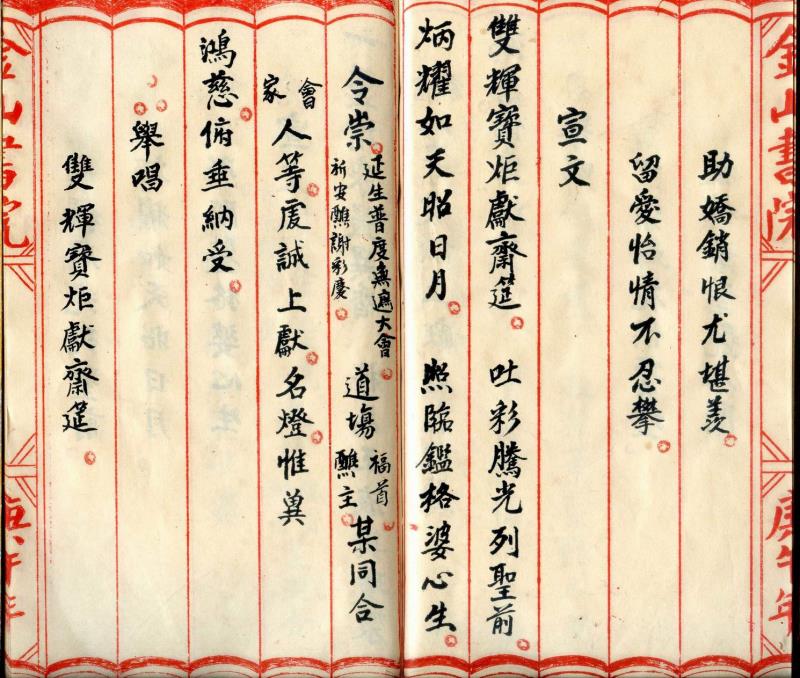 金山書院
庚午年
助嬌銷恨尤堪羨
留愛怡情不忍攀
宣文
雙輝寶炬獻齋筵 吐彩騰光列聖前
炳耀如天昭日月 照臨鑑格婆心生
令崇 延生普度無遍大會 道塲 福首 某同合
祈安醮謝彩慶 醮主
會 人等虔誠上獻名燈惟兾
家
鴻慈俯垂納受
舉唱
雙輝寶炬獻齋筵
金山書院
庚午年